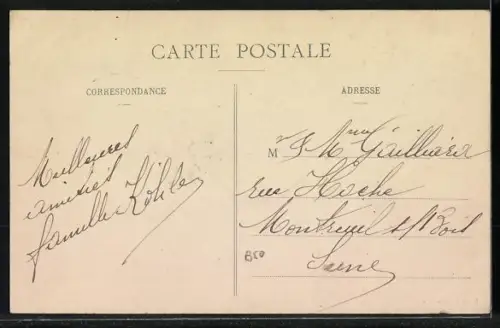 CARTE POSTALE
CORRESPONDANCE
ADRESSE
Meilleures
amitiés
famille Köhler
Mr & Mme Gailliard
rue Hoche
Montreuil s/ Bois
Seine
B50